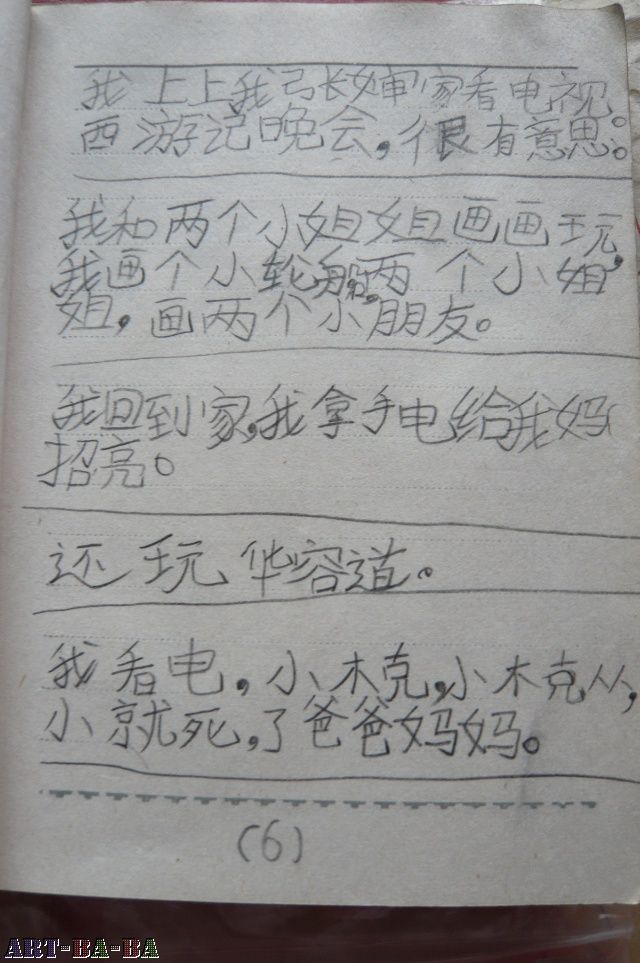 我上上我弓长婶家看电视。
西游记晚会，很有意思。
我和两个小姐姐画画玩，
我画个小轮船，两个小姐
姐，画两个小朋友。
我回到家，我拿手电给我妈
招亮。
还玩华容道。
我看电，小木克，小木克从，
小就死，了爸爸妈妈。
(6)
ART-BA-BA